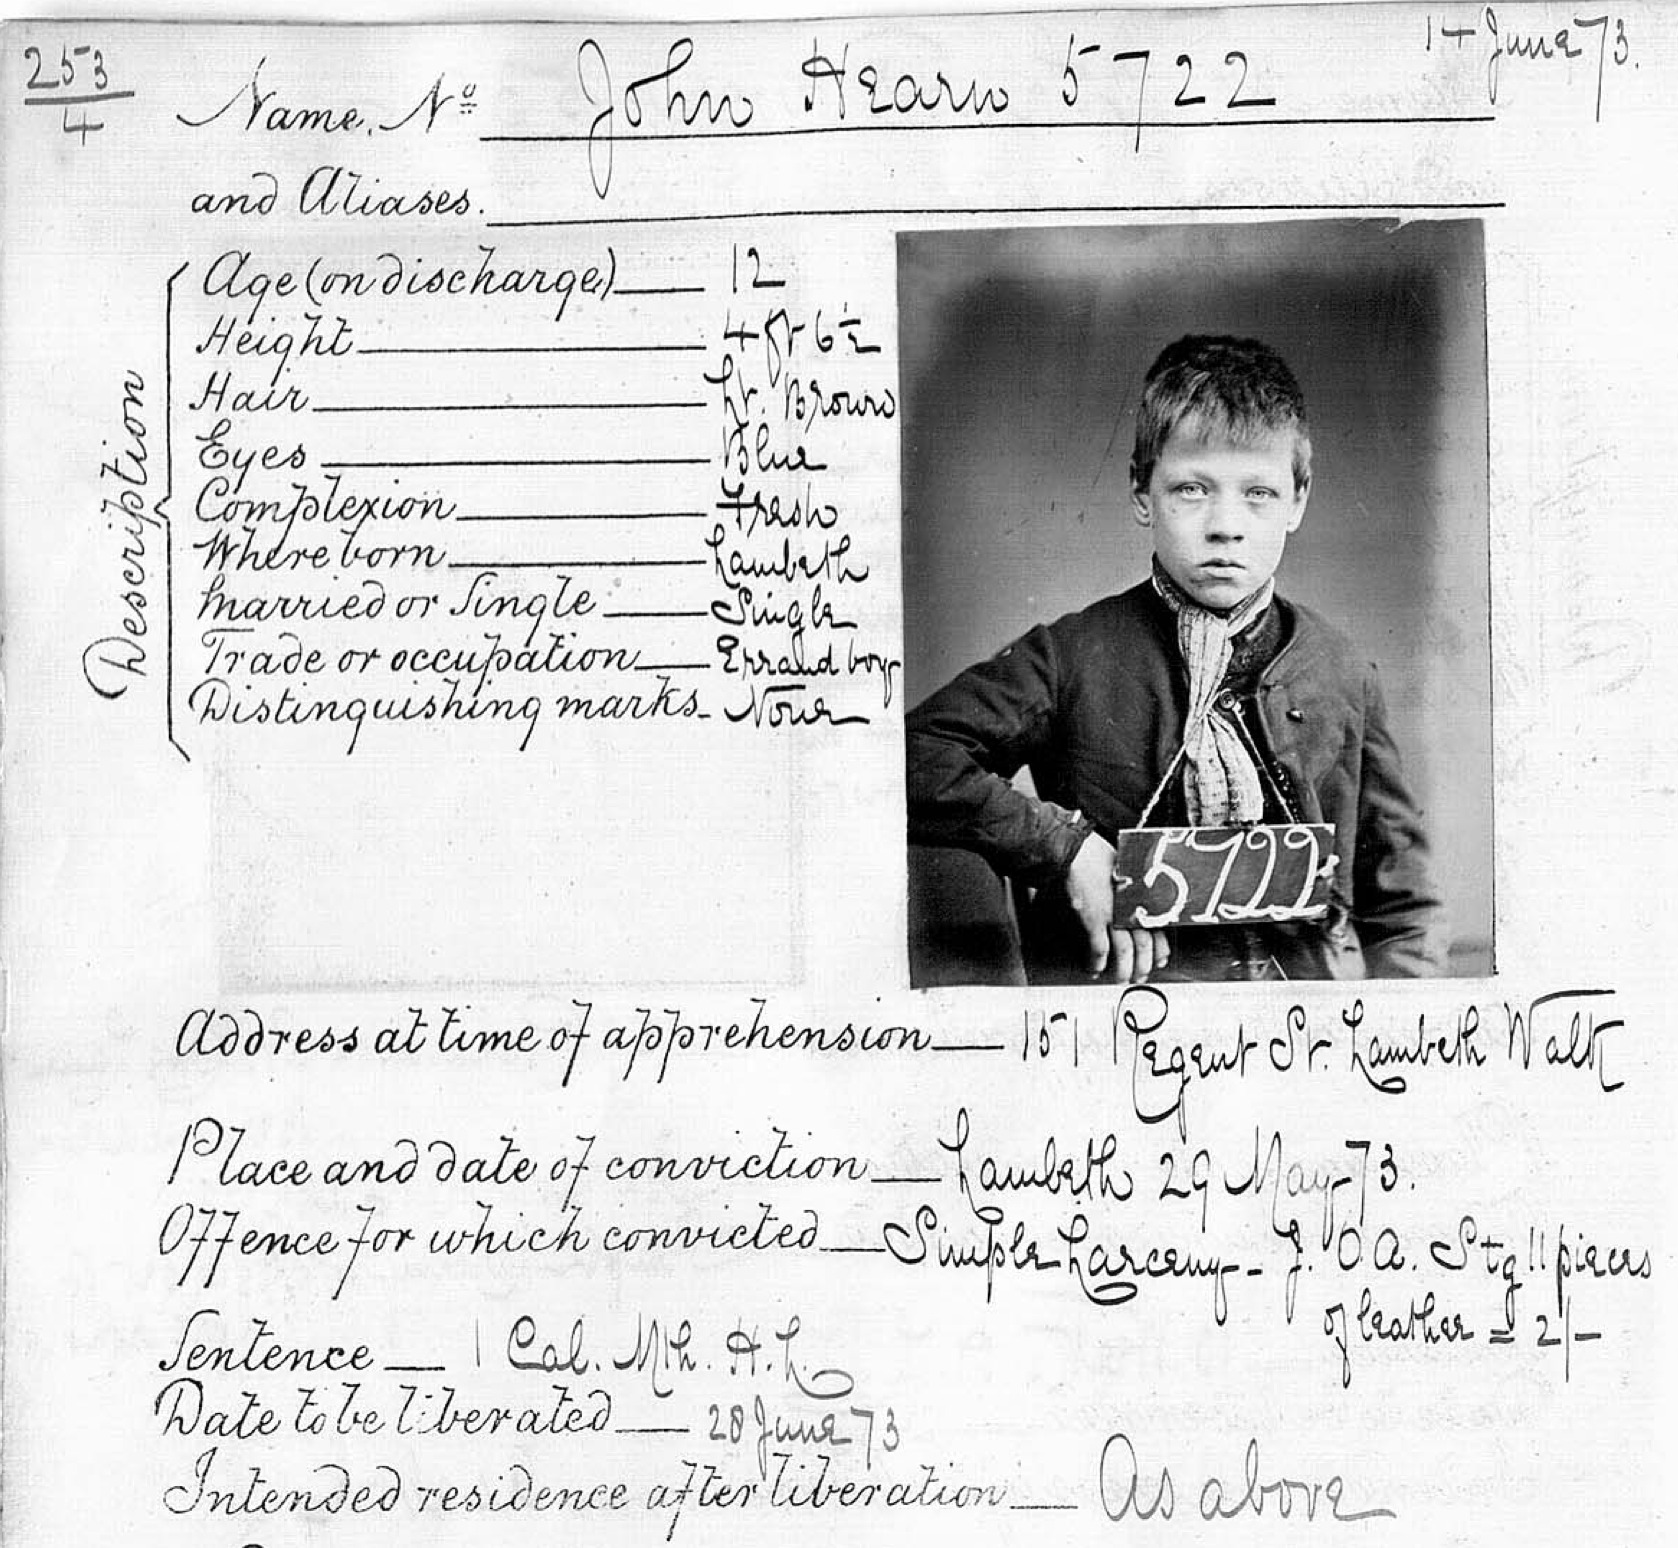 253
4
14 June 73.
Name. No John Hearn 5722
and Aliases.
Description
Age (on discharge) 12
Height 4 ft 6 1/2
Hair Lt. Brown
Eyes Blue
Complexion Fresh
Where born Lambeth
Married or Single Single
Trade or occupation Errand boy
Distinguishing marks None
5722
Address at time of apprehension 151 Regent St. Lambeth Walk
Place and date of conviction Lambeth 29 May 73.
Offence for which convicted Simple Larceny - J. O. A. Stg 11 pieces
of leather = 2/-
Sentence 1 Cal. Mth. H. L.
Date to be liberated 28 June 73
Intended residence after liberation As above